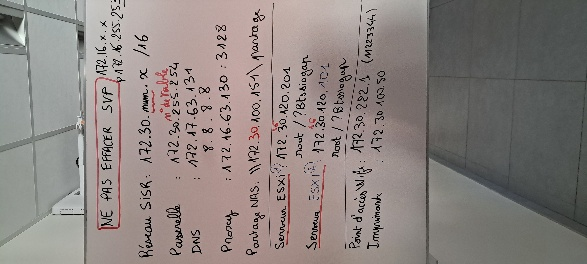 NE PAS EFFACER SVP
172.16.x.x
172.16.255.25
Réseau SISR: 172.30.num.x /16
n° de table
Passerelle : 172.30.255.254
DNS : 172.17.63.131
8.8.8.8
Proxy : 172.16.63.130:3128
Partage NAS: \\172.30.100.151\partage
Serveur ESXi : 172.30.120.201
root / ?Btssiogap
Serveur ESXi : 172.30.120.101
root / ?Btssiogap
Point d'accès Wifi: 172.30.222.1 (11223344)
Imprimante : 172.30.100.50